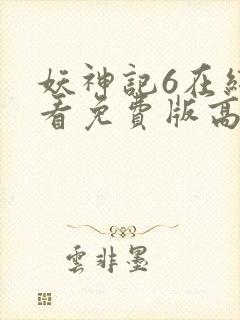 妖神記6在
看免費版高
雲非墨